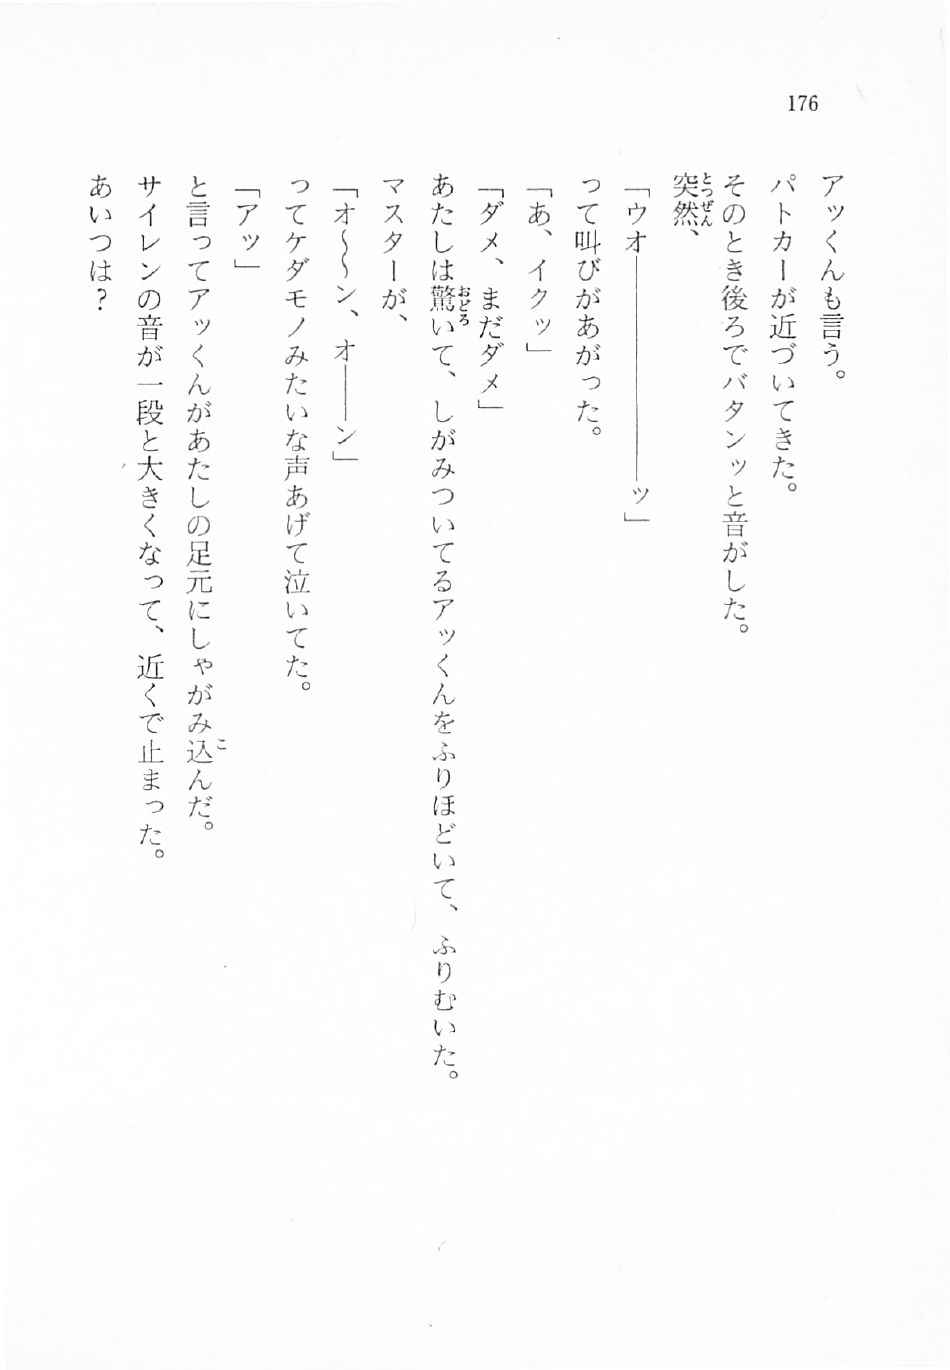 176
アッくんも言う。
パトカーが近づいてきた。
そのとき後ろでバタンッと音がした。
突然、
「ウオ――――――――ッ」
って叫びがあがった。
「あ、イクッ」
「ダメ、まだダメ」
あたしは驚いて、しがみついてるアッくんをふりほどいて、ふりむいた。
マスターが、
「オ〜〜ン、オ――ン」
ってケダモノみたいな声あげて泣いてた。
「アッ」
と言ってアッくんがあたしの足元にしゃがみ込んだ。
サイレンの音が一段と大きくなって、近くで止まった。
あいつは？